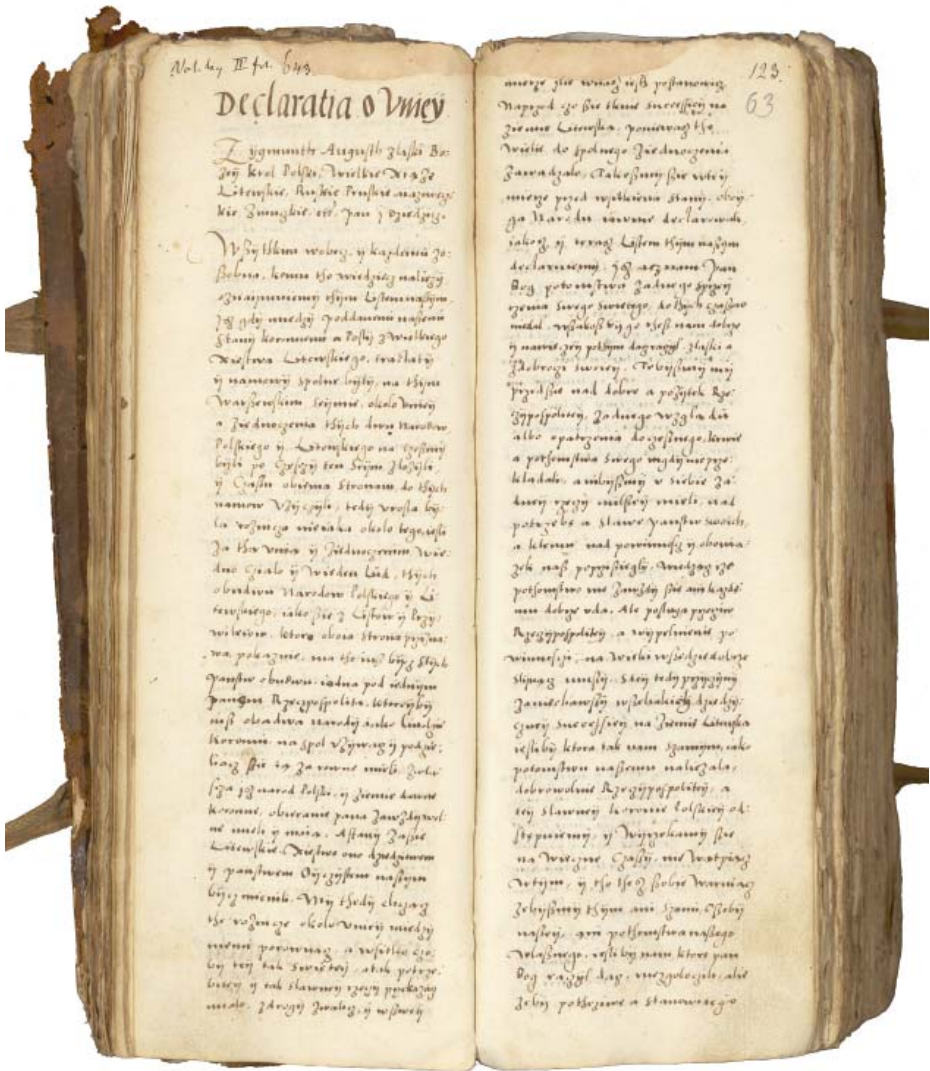 Vol. leg. II fol. 643.
Declaratia o Vniey
Zygmunth Augusth Zlaski Bo:
zey krol Polski, Wielkie Xiąże
Litewskie, Ruskie Pruskie mazowiecz
kie Zmudzkie, etc. pan y dziedzicz.
Wszytkim wobecz, y kazdemu zo:
sobna, komu tho wiedziecz nalezy
oznaimuiemy thym Listem naszym,
Jsz gdy miedzy poddanemi naszemi
Stany koronnemi a Posly z wielkiego
Xiestwa Litewskiego, tractaty
y namowy spolne byly, na thym
Warszewskim seymie, około vniey
a ziednoczenia thych dwu Narodow
Polskiego y Litewskiego na
byli po ten Seym zlozyli,
y Czassu obiema Stronam, do thych
namow vzyczyli, tedy vrosla by:
la roznicza nieiaka okolo tego, iesli
za tha vnia y ziednoczenim, wie:
dno Cialo y wieden Lud, thych
obudwu Narodow Polskiego y Li:
tewskiego, iako sie z Listow y Przy:
wileiow, ktore oboia Strona przyzna:
wa, pokazuie, ma tho iusz bycz ztych
panstw obudwu, iedna pod iednym
panem Rzeczpospolita, ktoreyby
iusz obadwa narody iako ludzie
koronni, na spol vzywacz y podzie:
liacz sie ią za rowno mieli,
sza Jsz narod Polski, y ziemie dawne
koronne, obieranie pana zawzdy wol:
ne mieli y maia. A Stany Zasie
Litewskie, Xiestwo ono dziedzicznem
y panstwem Oyczystem naszym
bycz mienili. My thedy chczącz
the roznicze okolo vniey miedzy
niemi porownacz, a wszitko czo:
by tey tak Swietey, a tak potrze:
bney y tak slawney rzeczy przekazacz
mialo, zdrogy zwalicz, y wszwey
123.
63
mierze zle wnacz iesth postanowicz
Naprzod czo sie tknie Successiey na
ziemie Litewska, poniewasz tho
wielie do spolnego ziednoczenia
zawadzalo, Takesmy sie wtey
mierze przed wszitkiemi Stany, oboy:
ga Narodu iawnie declarowali,
iakosz y teraz Listem thym naszym
declaruiemy, ysz acz nam Pan
Bog potomstwa zadnego spizey
rzenia swego swietego, do thych czassow
niedal, wszakosz by go thesz nam dobrze
y nawiecey pothym dacz raczyl, zlaski a
zdobroczi swoiey, Tobysmy my
przedsie nad dobre a pozytek Rze:
czypospolitey, zadnego wzgladu
albo opatrzenia doczesnego, krwie
a pothomstwa swego nigdy nieprze:
kladali, anibysmy v siebie za:
dney rzeczy milszey mieli, nad
potrzebe a slawe panstw swoich,
a ktemu nad powinnosz y obowia:
zek nasz poprzisiegly. wiedzacz ze
pothomstwo nie zawzdy sie ani kazde:
mu dobrze vda. Ale posluga przeciw
Rzeczypospolitey, a wypelnienie po
winnosczi, na wieki wszedzie dobrze
slynącz mussy. Stey tedy przyczyny
zaniechawszy wszelakiey dziedzi:
czney successiey na Ziemie Litewska
iesliby ktora tak nam szamym, iako
potomstwu naszemu nalezala,
dobrowolnie Rzeczypospolitey, a
tey slawney koronie Polskiey od:
stępuiemy, y Wyrzekamy sie
na wieczne Czassy, nie watpiącz
wtym, y tho thesz sobie waruiącz
zebysmy thym ani szami Osoby
naszey, ani pothomstwa naszego
wlasznego, iesliby nam, ktore pan
Bog raczyl dacz, niezgoloczili, ale
zeby pothcziwe a stanowczego